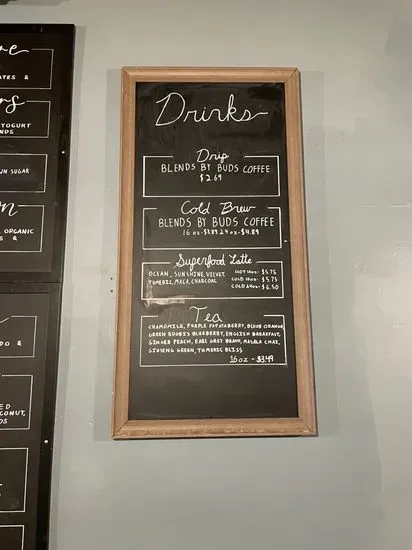 Drinks
Drip
BLENDS BY BUDS COFFEE
$2.69
Cold Brew
BLENDS BY BUDS COFFEE
16 oz - $3.89 24 oz - $4.89
Superfood Latte
OCEAN, SUNSHINE, VELVET,
TUMERIC, MACA, CHARCOAL
HOT 16oz - $5.75
COLD 16oz - $5.75
COLD 24oz - $6.50
Tea
CHAMOMILE, PURPLE PAPAYABERRY, BLOOD ORANGE
GREEN ROOIBIS BLUEBERRY, ENGLISH BREAKFAST,
GINGER PEACH, EARL GREY BRAVO, MASALA CHAI,
GINSENG GREEN, TUMERIC BLISS
16oz - $3.49
YOGURT
SUGAR
ORGANIC
&
DO &